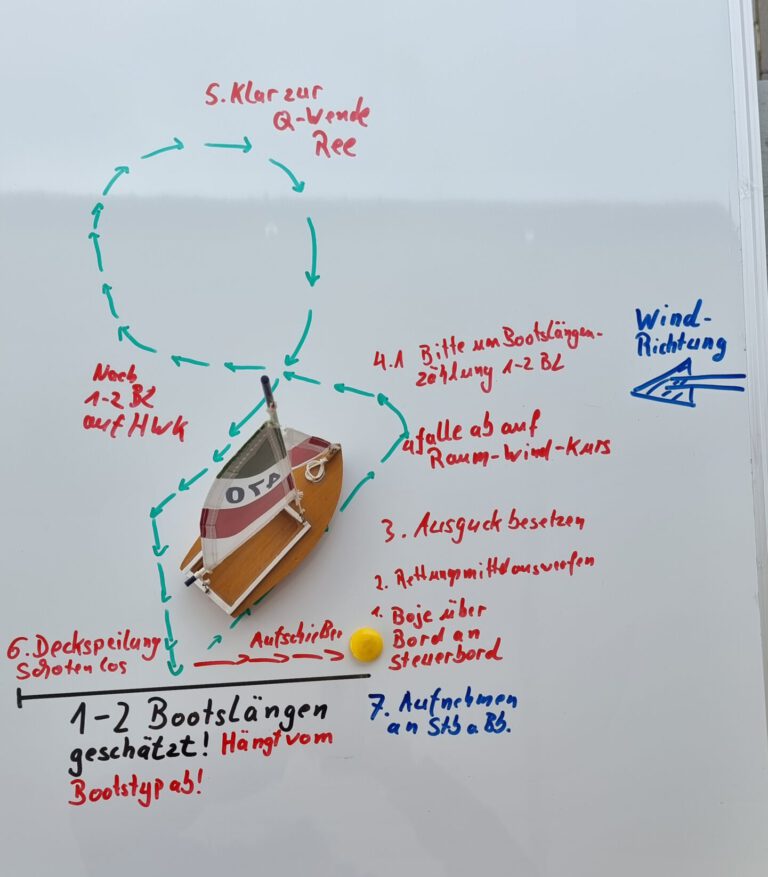 5. Klar zur
Q-Wende
Ree
Wind-
Richtung
4.1 Bitte um Bootslängen-
zählung 1-2 BL
Nach
1-2 BL
auf HWK
4 falle ab auf
Raum-Wind-Kurs
OTA
3. Ausguck besetzen
2. Rettungsmittel auswerfen
1. Boje über
Bord an
steuerbord
Aufschießer
6. Deckspeilung
Schoten los
1-2 Bootslängen
geschätzt! Hängt vom
Bootstyp ab!
7. Aufnehmen
an Stb o Bb.